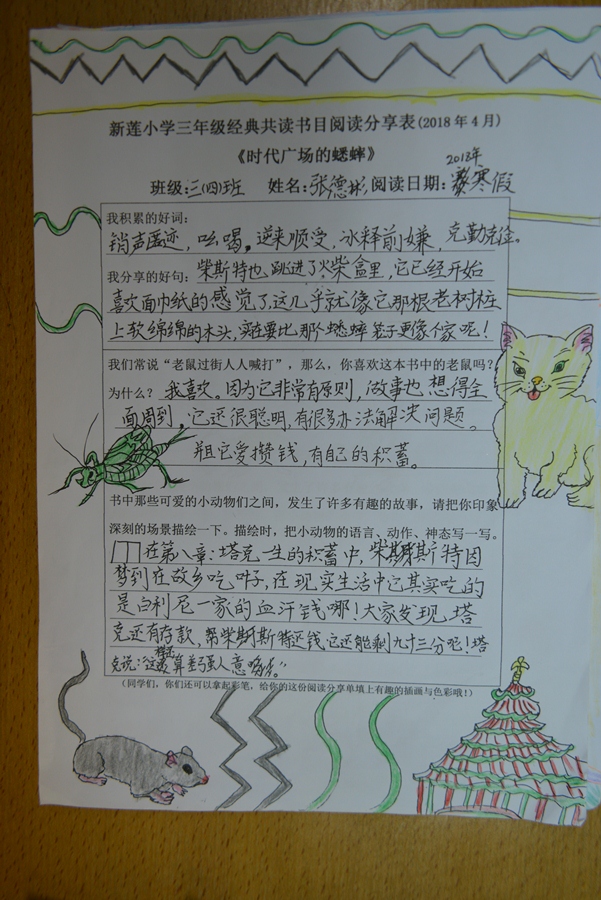 新莲小学三年级经典共读书目阅读分享表(2018年4月)
《时代广场的蟋蟀》
班级:三(四)班 姓名:张德彬 阅读日期:2018年寒假
我积累的好词:
销声匿迹,吆喝,逆来顺受,冰释前嫌,克勤克俭。
我分享的好句:柴斯特也跳进了火柴盒里,它已经开始
喜欢面巾纸的感觉了,这几乎就像它那根老树桩
上软绵绵的木头,实在要比那个蟋蟀笼子更像个家呢!
我们常说“老鼠过街人人喊打”,那么,你喜欢这本书中的老鼠吗?
为什么?我喜欢。因为它非常有原则,做事也想得全
面周到。它还很聪明,有很多办法解决问题。
且它爱攒钱,有自己的积蓄。
书中那些可爱的小动物们之间,发生了许多有趣的故事,请把你印象
深刻的场景描绘一下。描绘时,把小动物的语言、动作、神态写一写。
在第八章:塔克一生的积蓄中,柴斯特因
梦到在故乡吃叶子,在现实生活中它其实吃的
是白利尼一家的血汗钱哪!大家发现塔
克还有存款,帮柴斯特还钱,它还能剩九十三分呢!塔
克说:
(同学们,你们还可以拿起彩笔,给你的这份阅读分享单填上有趣的插画与色彩哦!)